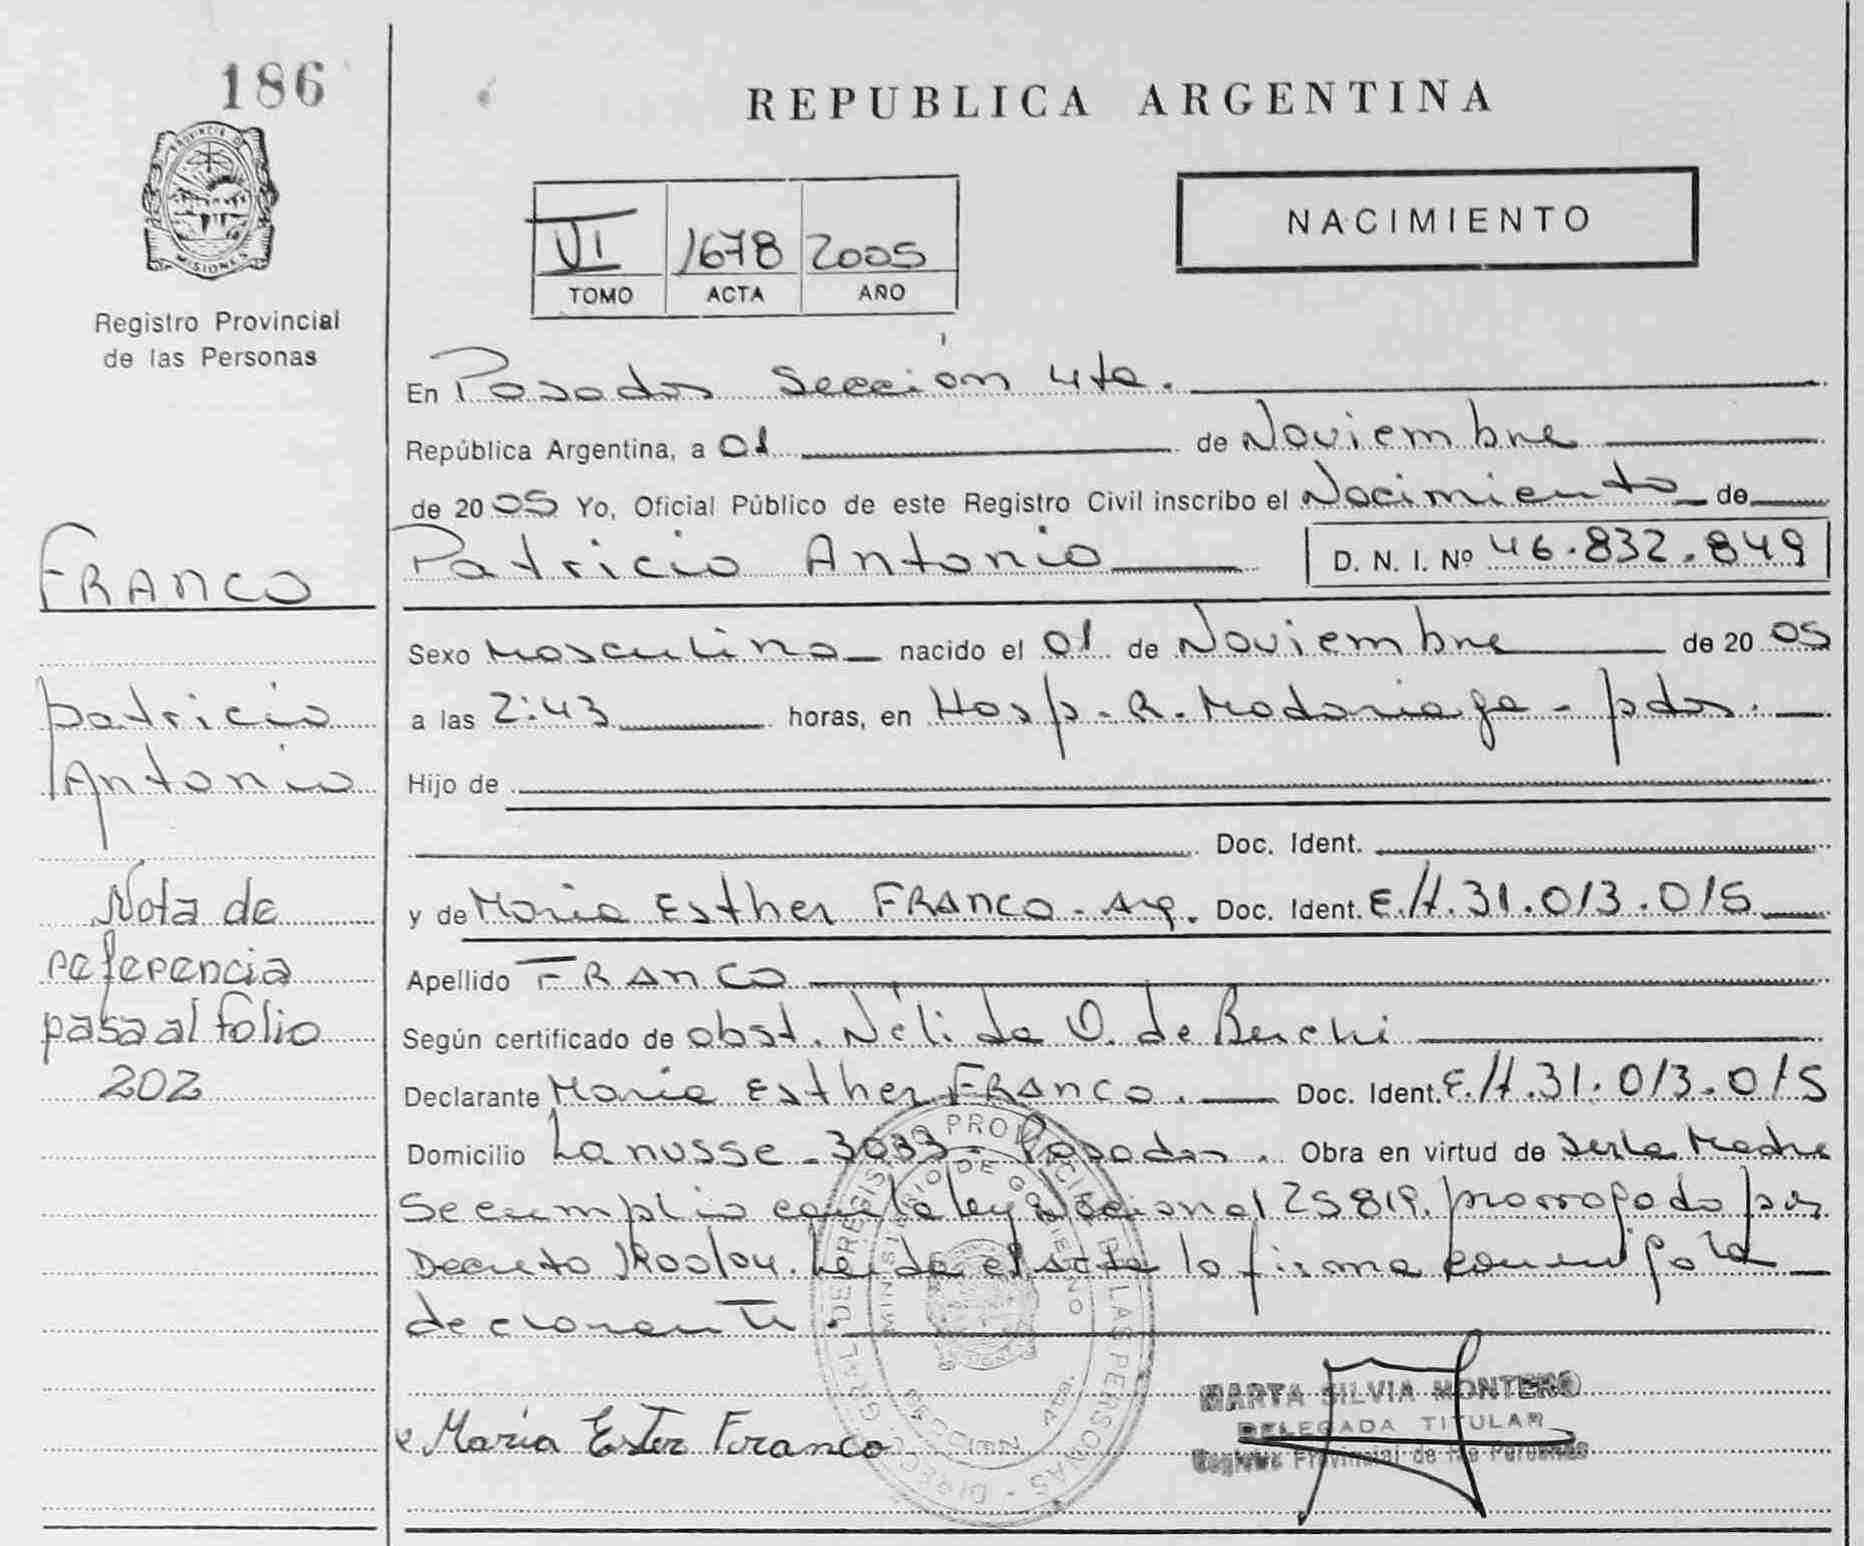 186
REPUBLICA ARGENTINA
PROVINCIA DE MISIONES
Registro Provincial
de las Personas
VI 1678 2005
TOMO ACTA AÑO
NACIMIENTO
En Posadas Sección 4ta.
República Argentina, a 01 de Noviembre
de 2005 Yo, Oficial Público de este Registro Civil inscribo el Nacimiento de
Patricio Antonio D. N. I. Nº 46.832.849
Sexo Masculino nacido el 01 de Noviembre de 2005
a las 2:43 horas, en Hosp. R. Madariaga - pdas.
Hijo de
Doc. Ident.
y de Maria Esther FRANCO - Arg. Doc. Ident. E./t. 31.013.015
Apellido FRANCO
Según certificado de obst. Nélida O. de
Declarante Maria Esther FRANCO. Doc. Ident. E./t. 31.013.015
Domicilio Lanusse - 3033 - Posadas. Obra en virtud de ser la Madre
Se cumplio con la ley Nacional 25819. prorrogado por
Decreto 1200/04. Leida el acta la firma conmigo la
declarante.
FRANCO
Patricio
Antonio
Nota de
referencia
pasa al folio
202
María Ester Franco
MARTA SILVIA MONTERO
DELEGADA TITULAR
Registro Provincial de las Personas
DIRECC. GRAL. DE REGISTRO PROVINCIAL DE LAS PERSONAS
MINISTERIO DE GOBIERNO